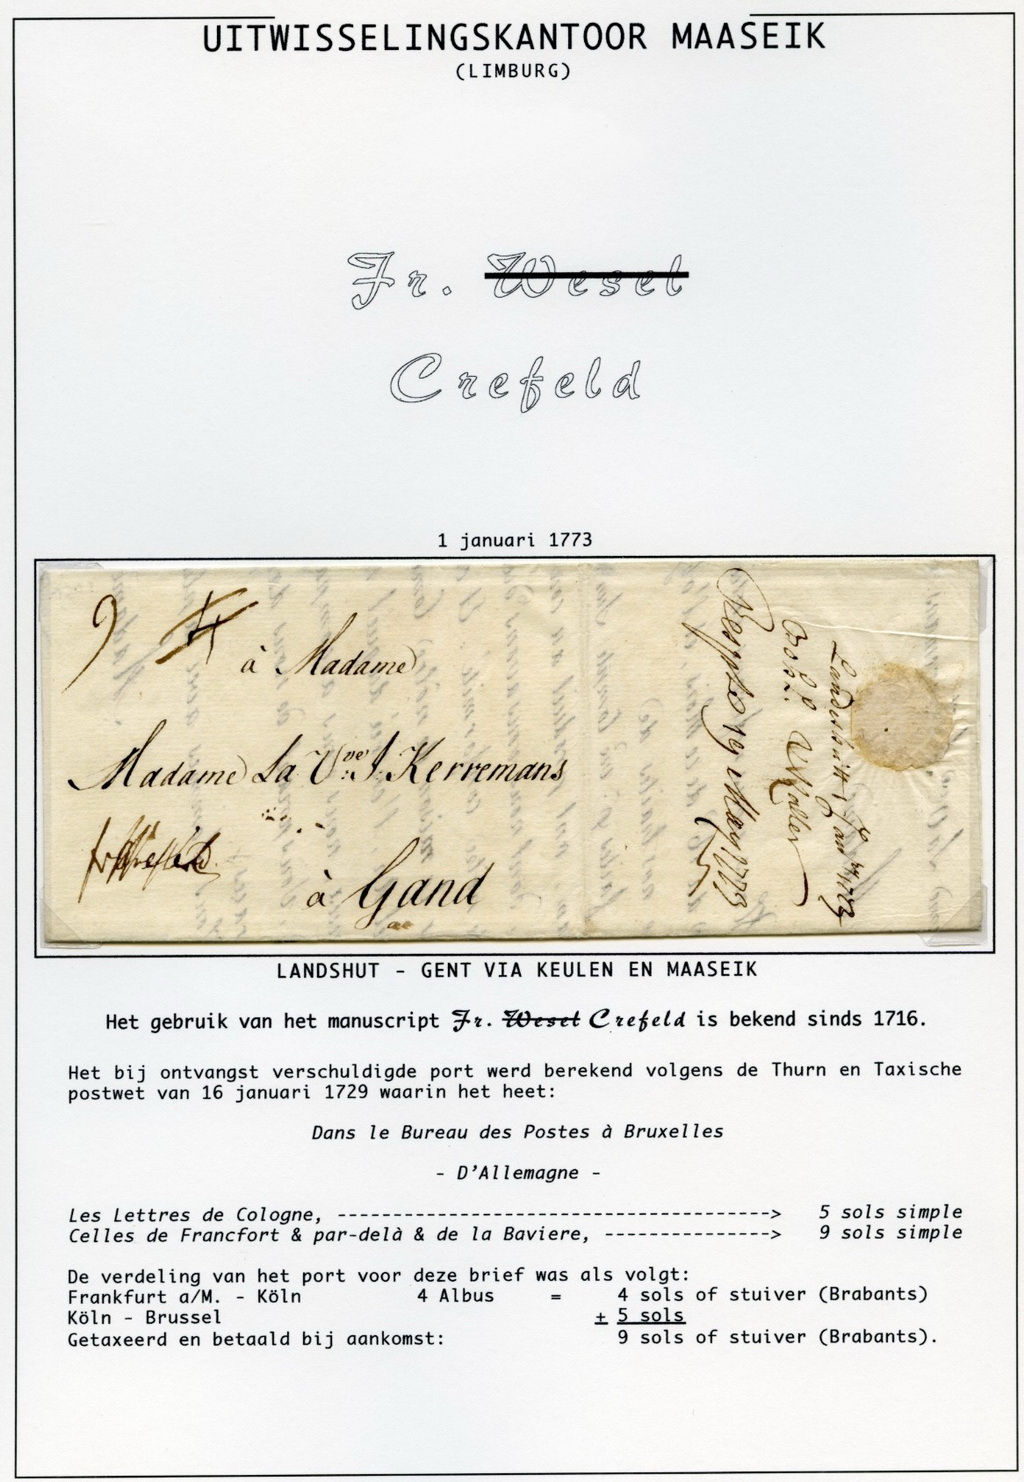 UITWISSELINGSKANTOOR MAASEIK
(LIMBURG)
Fr. Wesel
Crefeld
1 januari 1773
9 4
à Madame
Madame La Vve J. Kerremans
à Gand
1773
LANDSHUT - GENT VIA KEULEN EN MAASEIK
Het gebruik van het manuscript Fr. Wesel Crefeld is bekend sinds 1716.
Het bij ontvangst verschuldigde port werd berekend volgens de Thurn en Taxische
postwet van 16 januari 1729 waarin het heet:
Dans le Bureau des Postes à Bruxelles
- D'Allemagne -
Les Lettres de Cologne, ----------------------------------------> 5 sols simple
Celles de Francfort & par-delà & de la Baviere, ---------------> 9 sols simple
De verdeling van het port voor deze brief was als volgt:
Frankfurt a/M. - Köln 4 Albus = 4 sols of stuiver (Brabants)
Köln - Brussel + 5 sols
Getaxeerd en betaald bij aankomst: 9 sols of stuiver (Brabants).